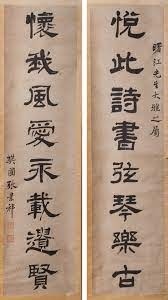 悅此詩書弦琴樂古
曙江先生大雅之屬
懷我風愛永載遺賢
張景祥